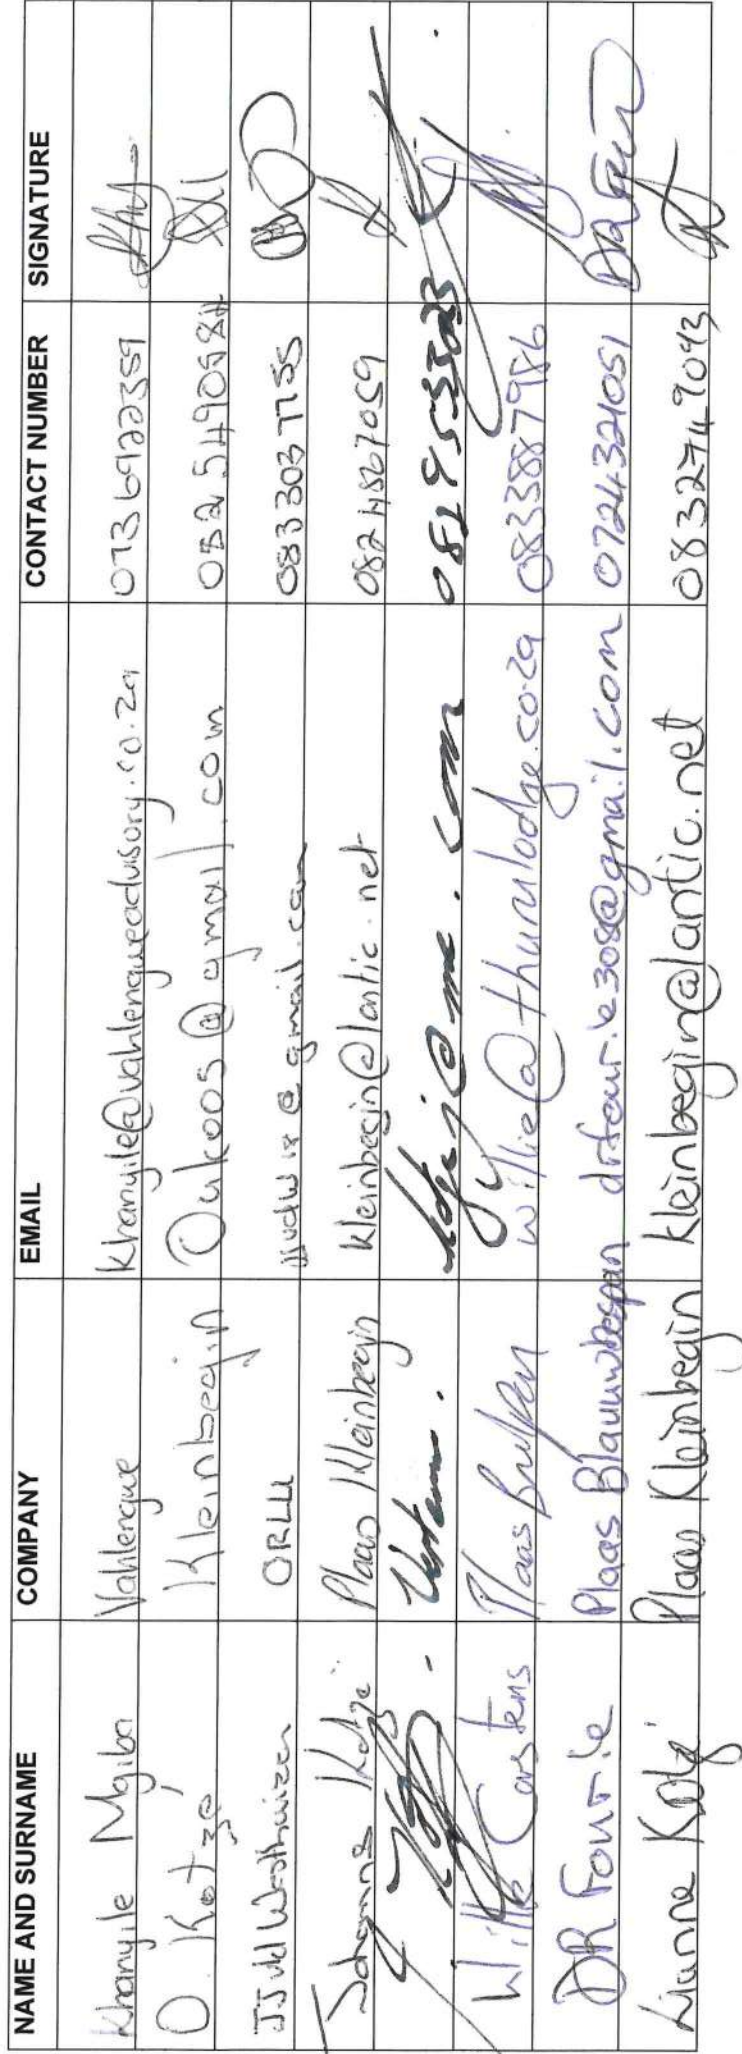 NAME AND SURNAME COMPANY EMAIL CONTACT NUMBER SIGNATURE
Khanyile Mgiba Vahlengwe Khanyile@vahlengweadvisory.co.za 073 6922359
O. Kotzé Kleinbegin Oukoos@gmail.com 082 5490584
JJ vd Westhuizen ORLU jjvdw12@gmail.com 083 303 7755
Johannes Kotze Plaas Kleinbegin kleinbegin@lantic.net 082 4567059
.com
Willie Carstens Plaas willie@thurulodge.co.za 0833887986
DR Fourie Plaas Blauuwbospan drfourie308@gmail.com 0724321051
Lianne Kotze Plaas Kleinbegin kleinbegin@lantic.net 0832749093